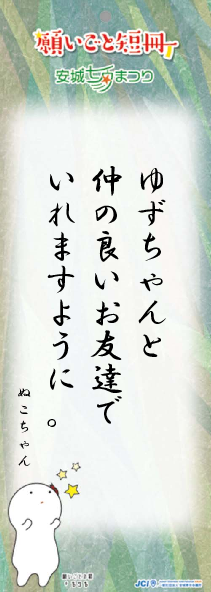 願いごと短冊
安城七夕まつり
ゆずちゃんと
仲の良いお友達で
いれますように。
ぬこちゃん
JCI